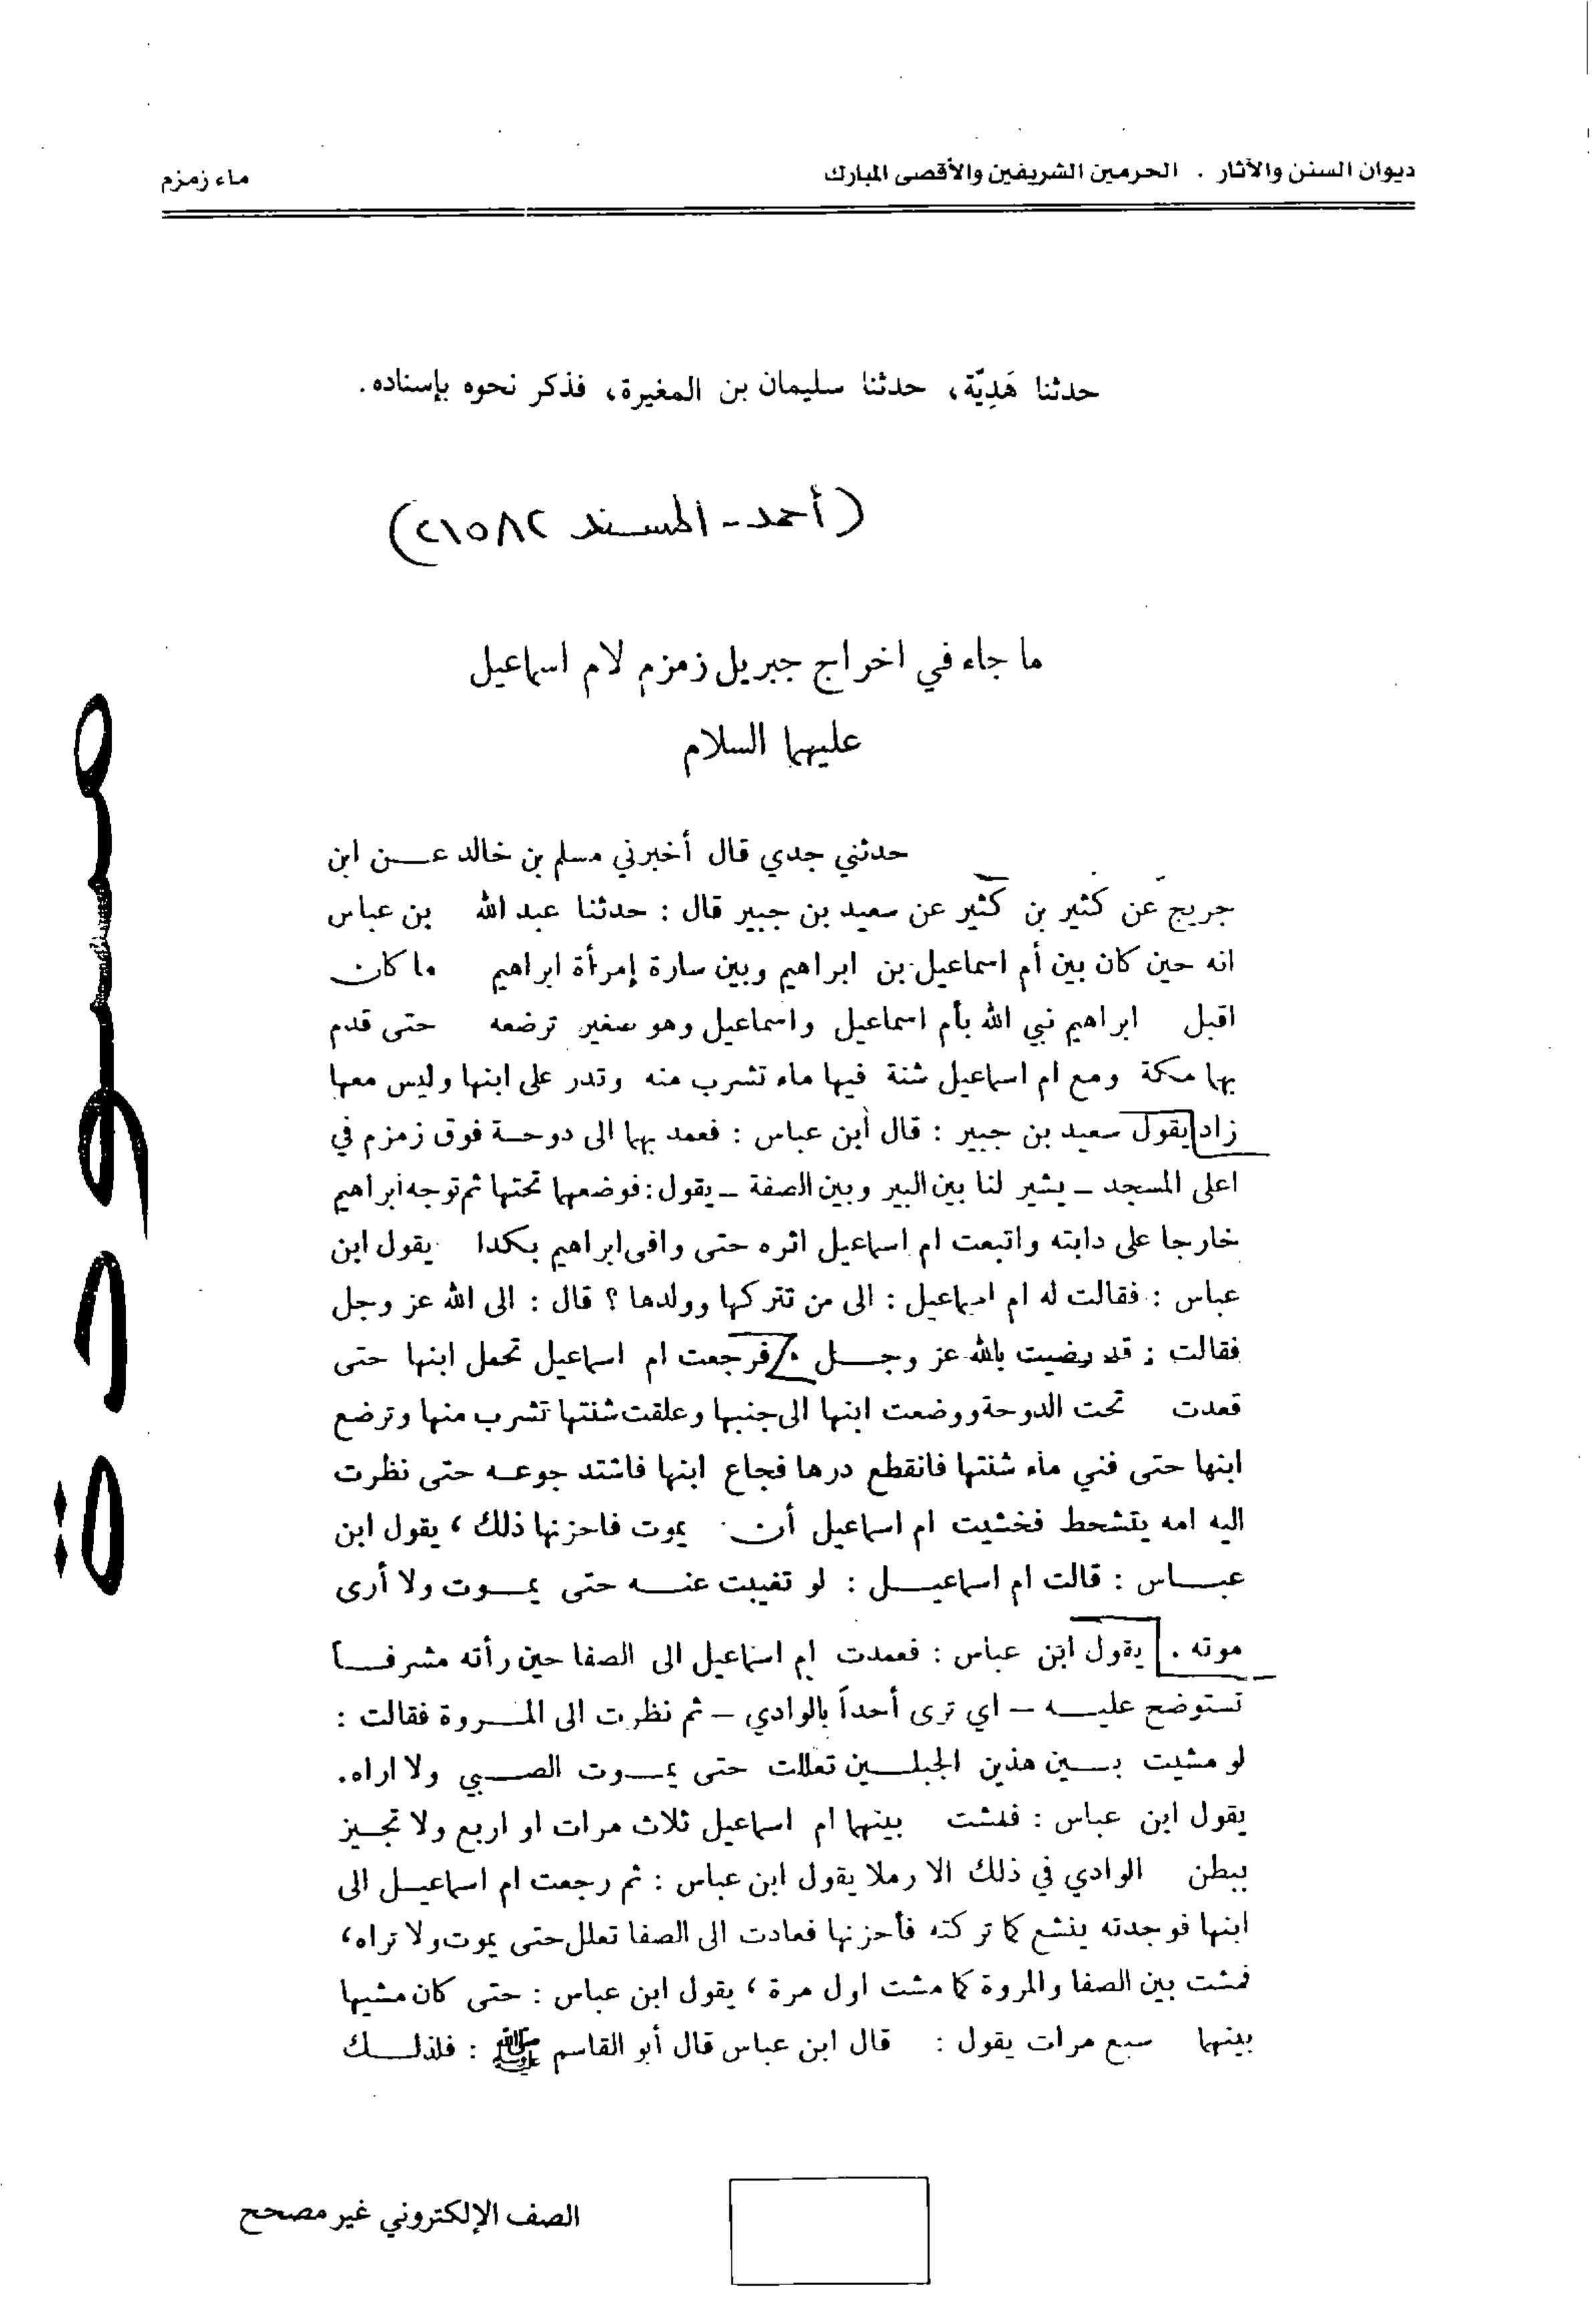 ديوان السنن والآثار . الحرمين الشريفين والأقصى المبارك
ماء زمزم
حدثنا هَدِيّة، حدثنا سليمان بن المغيرة، فذكر نحوه بإسناده.
(أحمد - المسند ٢١٥٨٢)
ما جاء في اخراج جبريل زمزم لام اسماعيل
عليهما السلام
حدثني جدي قال أخبرني مسلم بن خالد عن ابن
جريج عن كثير بن كثير عن سعيد بن جبير قال : حدثنا عبد الله بن عباس
انه حين كان بين أم اسماعيل بن ابراهيم وبين سارة إمرأة ابراهيم ما كان
اقبل ابراهيم نبي الله بأم اسماعيل واسماعيل وهو صغير ترضعه حتى قدم
بهما مكة ومع ام اسماعيل شنة فيها ماء تشرب منه وتدر على ابنها وليس معها
زاد يقول سعيد بن جبير : قال أبن عباس : فعمد بهما الى دوحة فوق زمزم في
اعلى المسجد – يشير لنا بين البير وبين الصفة – يقول : فوضعهما تحتها ثم توجه ابراهيم
خارجا على دابته واتبعت ام اسماعيل اثره حتى وافى ابراهيم بكدا يقول ابن
عباس : فقالت له ام اسماعيل : الى من تتركها وولدها ؟ قال : الى الله عز وجل
فقالت : قد رضيت بالله عز وجل . فرجعت ام اسماعيل تحمل ابنها حتى
قعدت تحت الدوحة ووضعت ابنها الى جنبها وعلقت شنتها تشرب منها وترضع
ابنها حتى فني ماء شنتها فانقطع درها فجاع ابنها فاشتد جوعه حتى نظرت
اليه امه يتشحط فخشيت ام اسماعيل أن يموت فاحزنها ذلك ، يقول ابن
عباس : قالت ام اسماعيل : لو تغيبت عنه حتى يموت ولا أرى
موته . يقول ابن عباس : فعمدت ام اسماعيل الى الصفا حين رأته مشرفا
تستوضح عليه – اي ترى أحداً بالوادي – ثم نظرت الى المروة فقالت :
لو مشيت بين هذين الجبلين تعللت حتى يموت الصبي ولا اراه.
يقول ابن عباس : فمشت بينهما ام اسماعيل ثلاث مرات او اربع ولا تجيز
ببطن الوادي في ذلك الا رملا يقول ابن عباس : ثم رجعت ام اسماعيل الى
ابنها فوجدته ينشع كما تركته فأحزنها فعادت الى الصفا تعلل حتى يموت ولا تراه،
فمشت بين الصفا والمروة كما مشت اول مرة ، يقول ابن عباس : حتى كان مشيها
بينهما سبع مرات يقول : قال ابن عباس قال أبو القاسم ﷺ : فلذلك
الصف الإلكتروني غير مصحح
مسودة